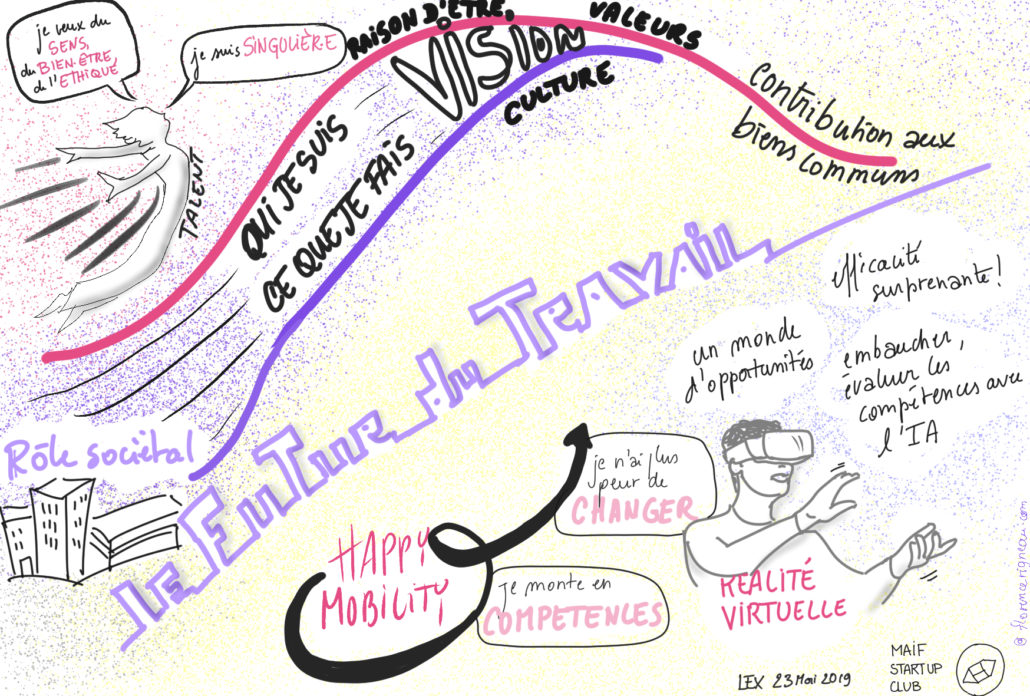 je veux du
SENS,
du BIEN-ÊTRE,
de l'ETHIQUE
je suis SINGULIÈRE
TALENT
RAISON D'ÊTRE,
VALEURS
VISION
CULTURE
QUI JE SUIS
CE QUE JE FAIS
Contribution aux
biens communs
Rôle sociétal
Le Futur du Travail
efficacité
surprenante!
un monde
d'opportunités
embaucher,
évaluer les
compétences avec
l'IA
je n'ai plus
peur de
CHANGER
HAPPY
MOBILITY
je monte en
COMPETENCES
REALITÉ
VIRTUELLE
LEX 23 Mai 2019
MAIF
STARTUP
CLUB
@florencerigneau.com